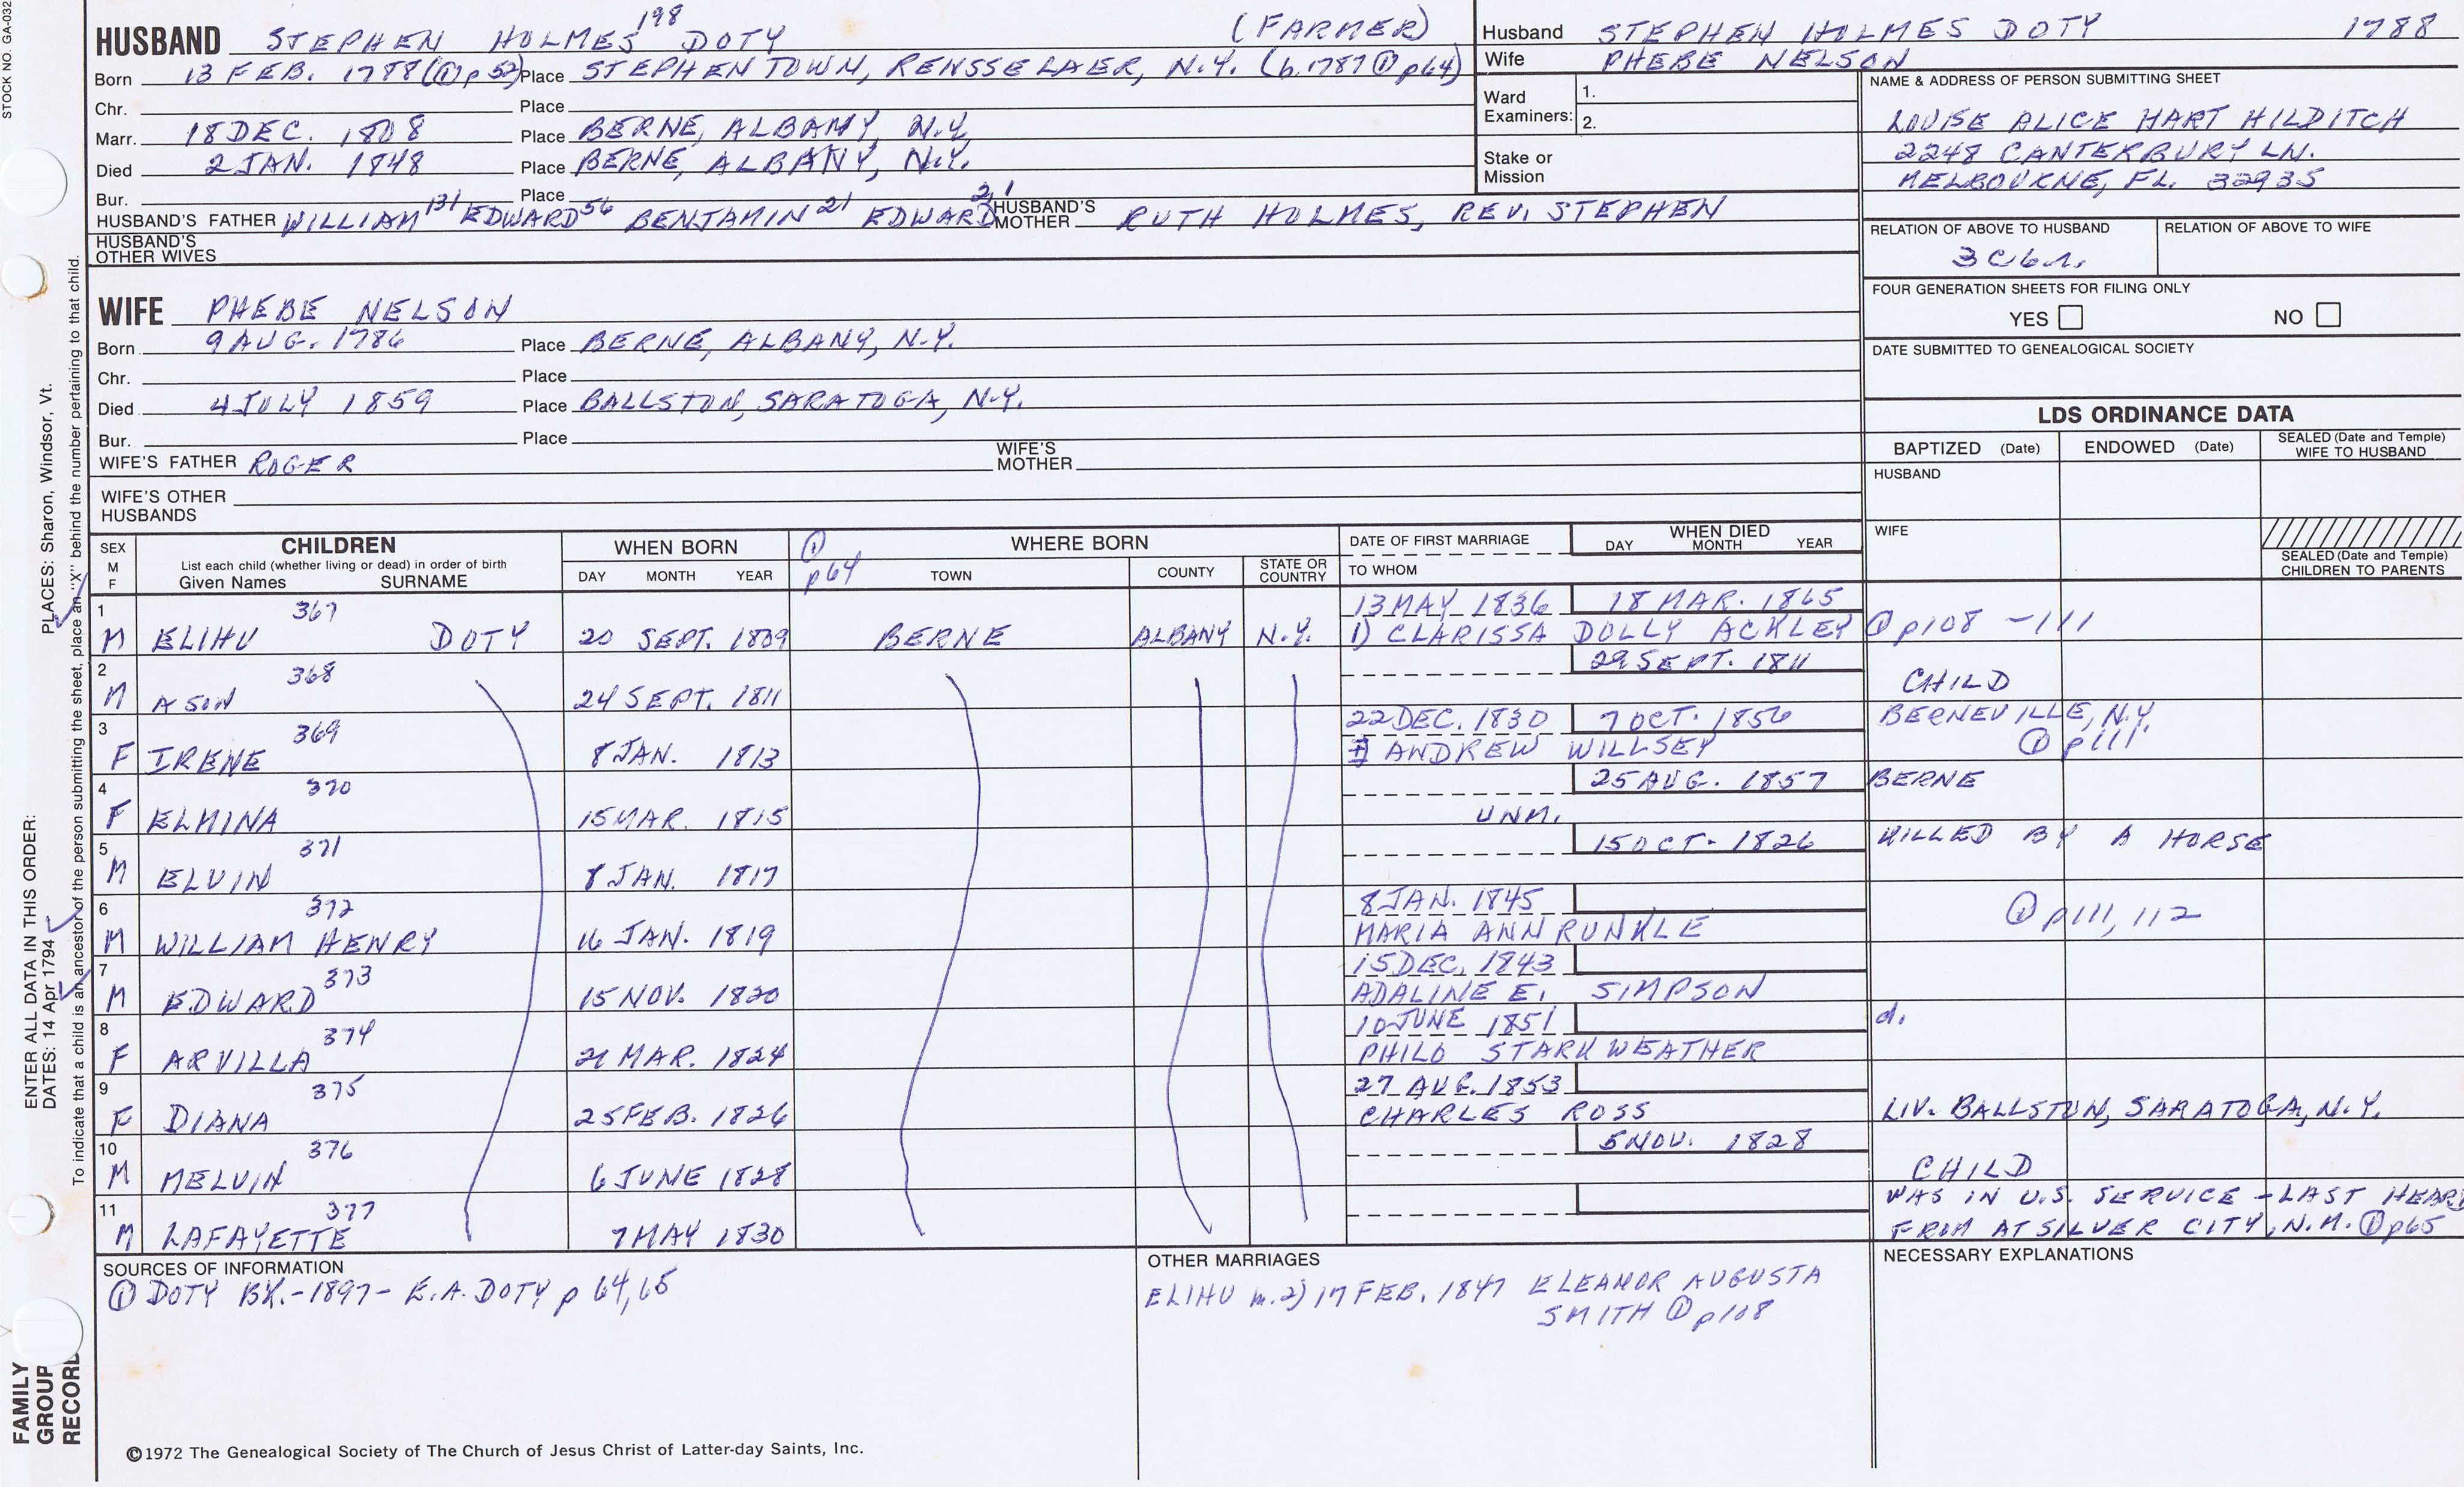 STOCK NO. GA-032
HUSBAND STEPHEN HOLMES 198 DOTY (FARMER)
Born 13 FEB. 1788 (① p 52) Place STEPHEN TOWN, RENSSELAER, N.Y. (b. 1787 ① p64)
Chr. Place
Marr. 18 DEC. 1808 Place BERNE, ALBANY, N.Y.
Died 2 JAN. 1848 Place BERNE, ALBANY, N.Y.
Bur. Place
HUSBAND'S FATHER WILLIAM 131 EDWARD 56 BENJAMIN 21 EDWARD 2, 1 HUSBAND'S MOTHER RUTH HOLMES, REV. STEPHEN
HUSBAND'S OTHER WIVES
Husband STEPHEN HOLMES DOTY 1788
Wife PHEBE NELSON
Ward Examiners: 1.
2.
Stake or Mission
NAME & ADDRESS OF PERSON SUBMITTING SHEET
LOUISE ALICE HART HILDITCH
2248 CANTERBURY LN.
MELBOURNE, FL. 32935
RELATION OF ABOVE TO HUSBAND RELATION OF ABOVE TO WIFE
3C6r.
FOUR GENERATION SHEETS FOR FILING ONLY
YES NO
DATE SUBMITTED TO GENEALOGICAL SOCIETY
WIFE PHEBE NELSON
Born 9 AUG. 1786 Place BERNE, ALBANY, N.Y.
Chr. Place
Died 4 JULY 1859 Place BALLSTON, SARATOGA, N.Y.
Bur. Place
WIFE'S FATHER ROGER WIFE'S MOTHER
WIFE'S OTHER HUSBANDS
LDS ORDINANCE DATA
BAPTIZED (Date) ENDOWED (Date) SEALED (Date and Temple) WIFE TO HUSBAND
HUSBAND
WIFE
SEALED (Date and Temple) CHILDREN TO PARENTS
SEX M F CHILDREN List each child (whether living or dead) in order of birth Given Names SURNAME
WHEN BORN DAY MONTH YEAR
① p64 WHERE BORN TOWN COUNTY STATE OR COUNTRY
DATE OF FIRST MARRIAGE TO WHOM
WHEN DIED DAY MONTH YEAR
1 367 13 MAY 1836 18 MAR. 1865
M ELIHU DOTY 20 SEPT. 1809 BERNE ALBANY N.Y. 1) CLARISSA DOLLY ACKLEY ① p108 - 111
2 368 29 SEPT. 1811
M A SON 24 SEPT. 1811 CHILD
3 369 22 DEC. 1830 7 OCT. 1856 BERNEVILLE, N.Y.
F IRENE 8 JAN. 1813 ANDREW WILLSEY ① p111
4 370 25 AUG. 1857 BERNE
F ELMINA 15 MAR. 1815 UNM.
5 371 15 OCT. 1826 KILLED BY A HORSE
M ELVIN 8 JAN. 1817
6 372 8 JAN. 1845
M WILLIAM HENRY 16 JAN. 1819 MARIA ANN RUNKLE ① p111, 112
7 373 15 DEC. 1843
M EDWARD 15 NOV. 1820 ADALINE E. SIMPSON
8 374 10 JUNE 1851 d.
F ARVILLA 21 MAR. 1824 PHILO STARKWEATHER
9 375 27 AUG. 1853
F DIANA 25 FEB. 1826 CHARLES ROSS LIV. BALLSTON, SARATOGA, N.Y.
10 376 5 NOV. 1828
M MELVIN 6 JUNE 1828 CHILD
11 377 WAS IN U.S. SERVICE - LAST HEARD
M LAFAYETTE 7 MAY 1830 FROM AT SILVER CITY, N.M. ① p65
SOURCES OF INFORMATION
① DOTY BK. - 1897 - E.A. DOTY p 64, 65
OTHER MARRIAGES
ELIHU m. 2) 17 FEB. 1847 ELEANOR AUGUSTA
SMITH ① p108
NECESSARY EXPLANATIONS
©1972 The Genealogical Society of The Church of Jesus Christ of Latter-day Saints, Inc.
ENTER ALL DATA IN THIS ORDER:
PLACES: Sharon, Windsor, Vt.
DATES: 14 Apr 1794
To indicate that a child is an ancestor of the person submitting the sheet, place an "X" behind the number pertaining to that child.
FAMILY
GROUP
RECORD